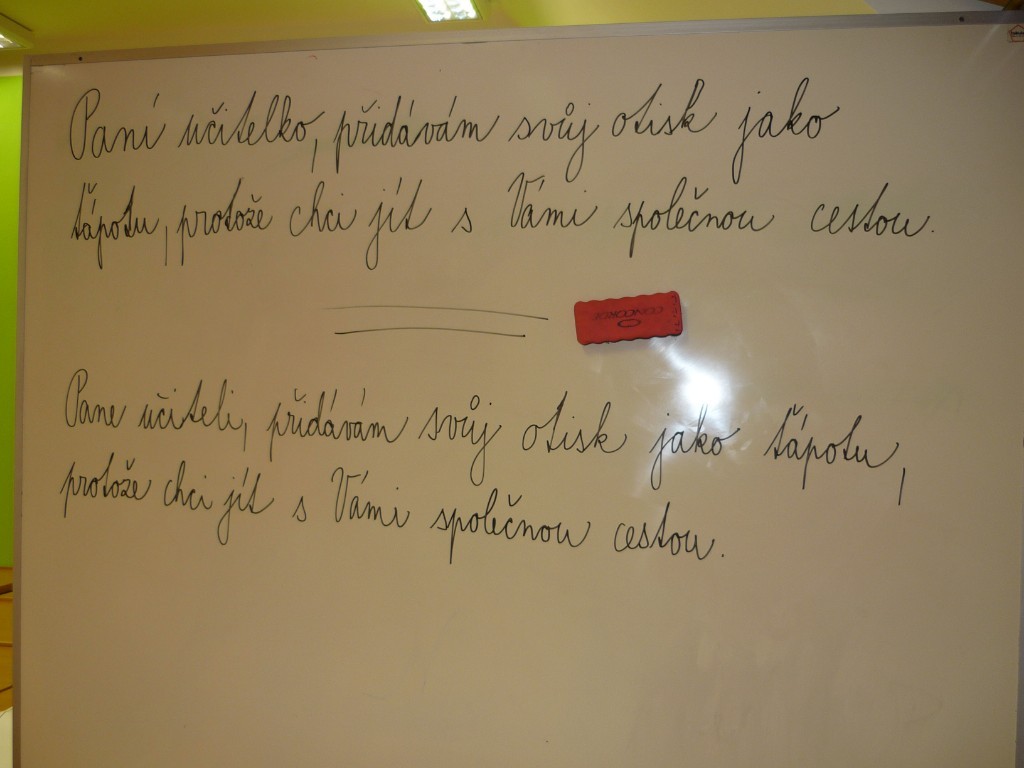 Paní učitelko, přidávám svůj otisk jako
ťápotu, protože chci jít s Vámi společnou cestou.
Pane učiteli, přidávám svůj otisk jako ťápotu,
protože chci jít s Vámi společnou cestou.